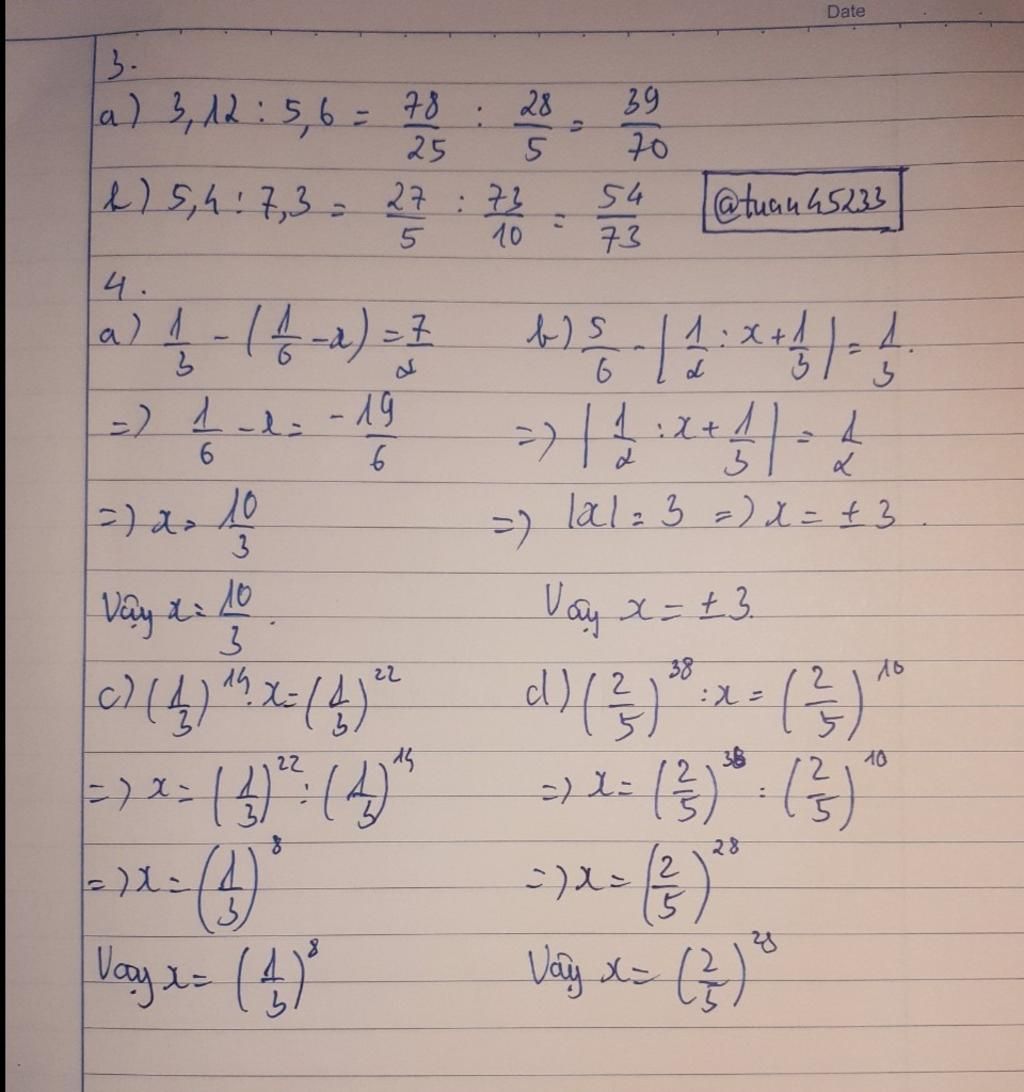 Date
3.
a) 3,12 : 5,6 = 78/25 : 28/5 = 39/70
b) 5,4 : 7,3 = 27/5 : 73/10 = 54/73
@tuan45233
4.
a) 1/3 - (1/6 - x) = 7/2
=> 1/6 - x = -19/6
=> x = 10/3
Vậy x = 10/3.
b) 5/6 - |1/2 : x + 1/3| = 1/3.
=> |1/2 : x + 1/3| = 1/2
=> |x| = 3 => x = ± 3.
Vậy x = ± 3.
c) (1/3)^14 . x = (1/3)^22
=> x = (1/3)^22 : (1/3)^14
=> x = (1/3)^8
Vậy x = (1/3)^8
d) (2/5)^38 : x = (2/5)^10
=> x = (2/5)^38 : (2/5)^10
=> x = (2/5)^28
Vậy x = (2/5)^28